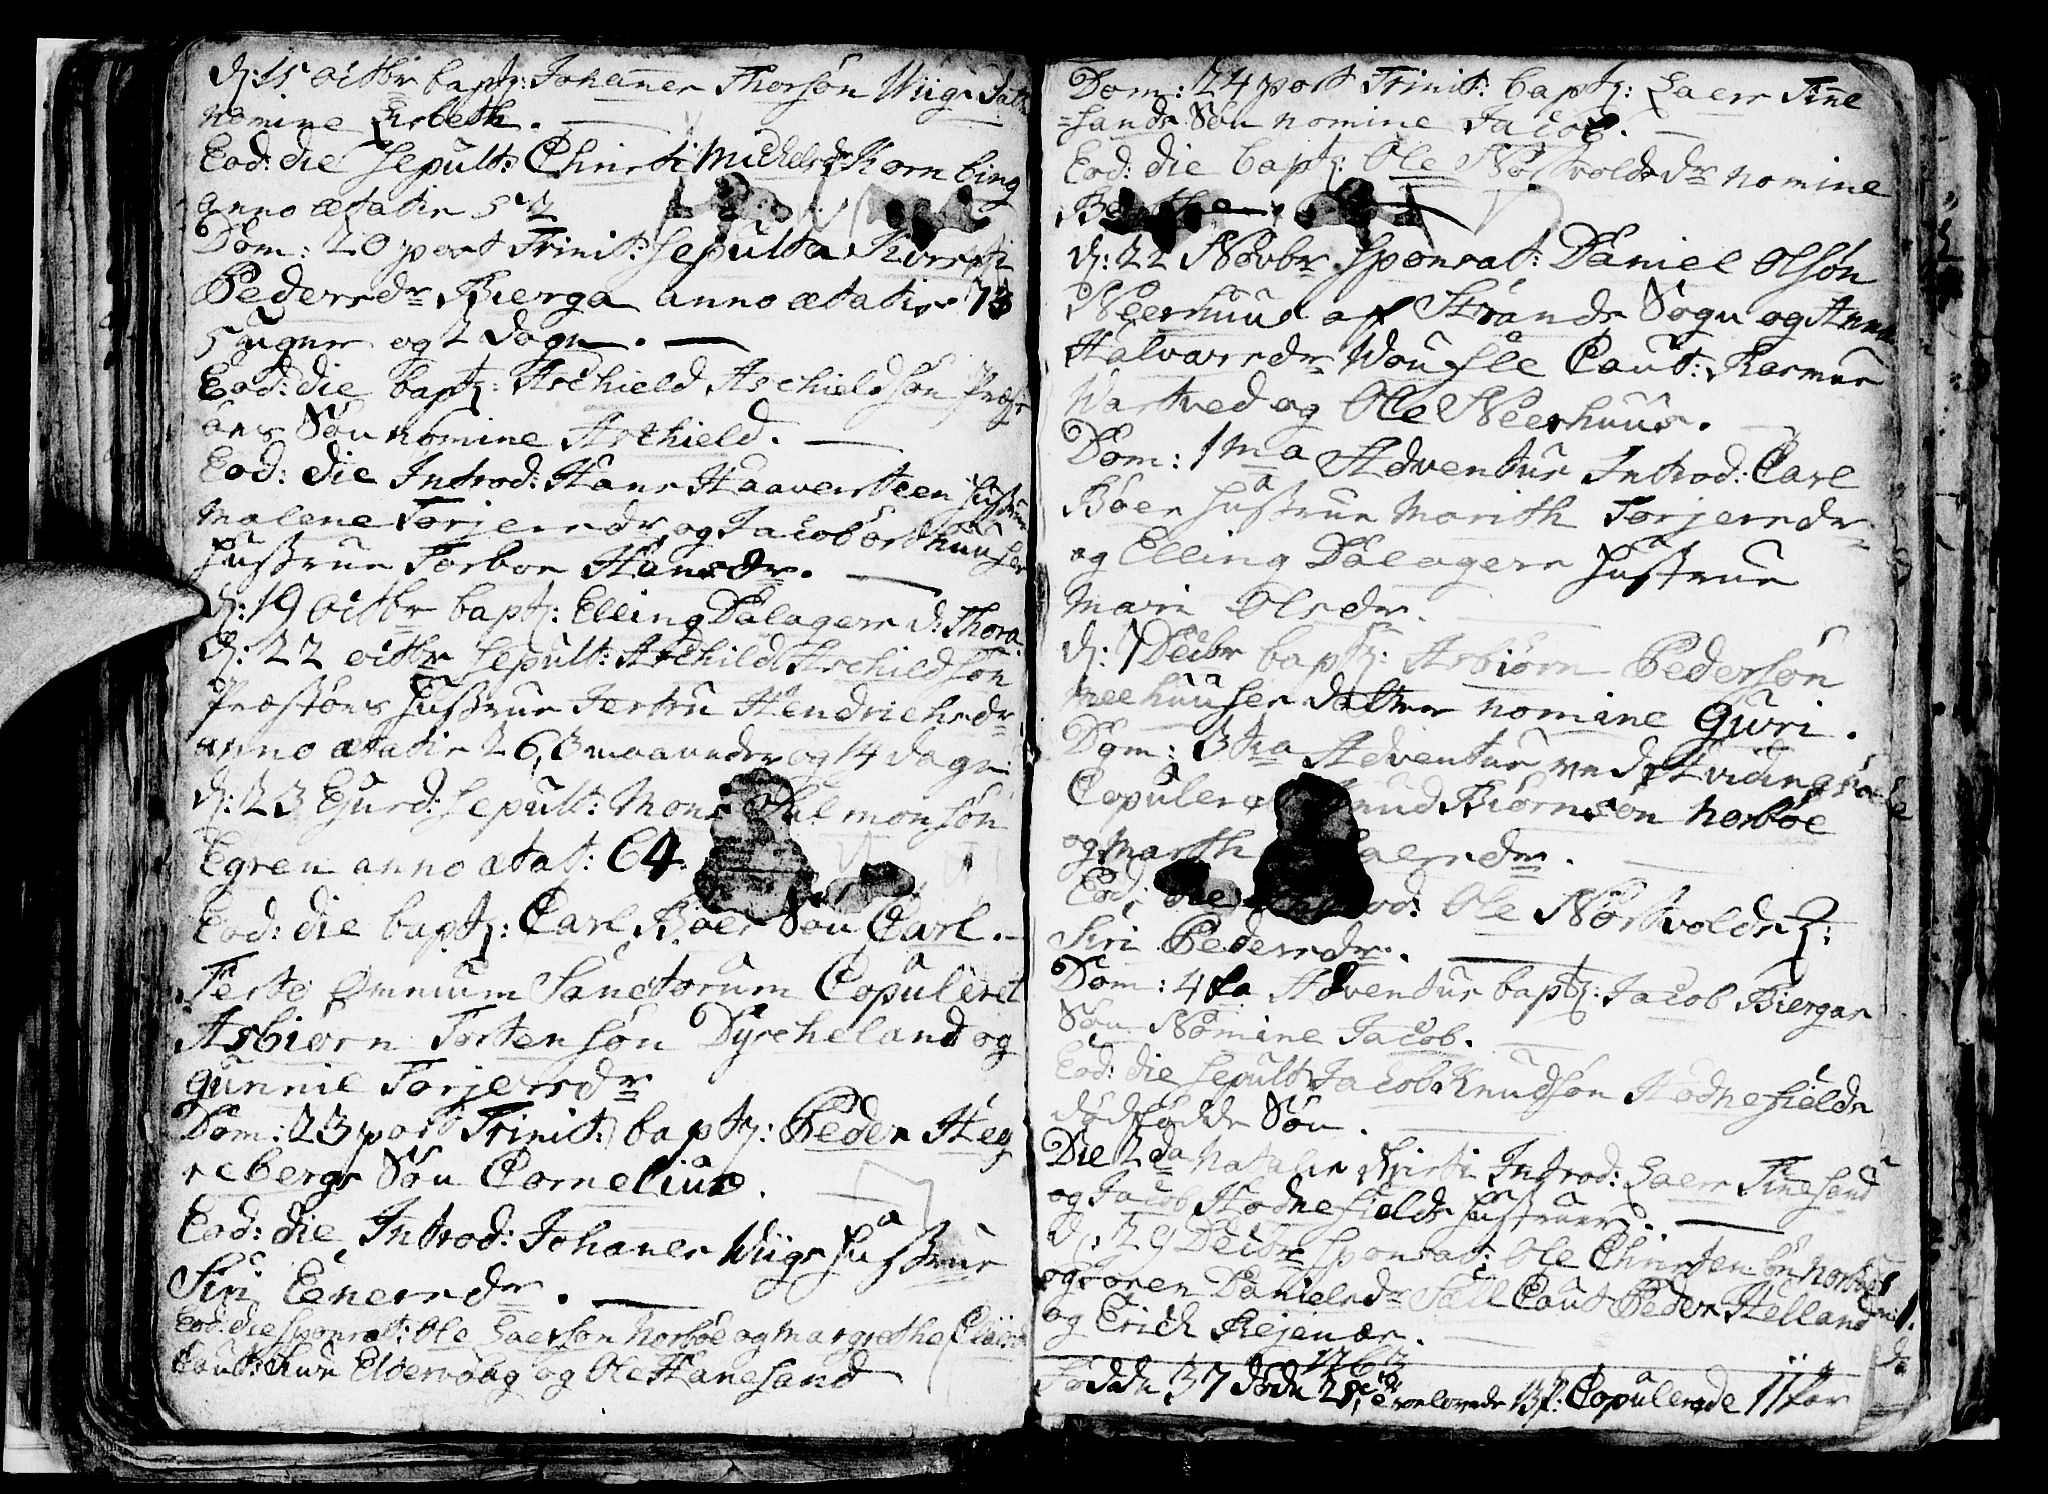 d: 15 octbr bapt: Johannes Thorsøn Wiigs datt:
nomine Lisbeth.
Eod: die sepult: Christi Michelsdr Kornbing
anno ætatis 52
Dom: 20 post Trinit: sepulta Kirsti
Pedersdr Bierga anno ætatis 73
5 uger og 2 dage.
Eod: die bapt: Aschield Aschieldsøn Præst
øns Søn nomine Aschield.
Eod: die Introd: Hans Haaversteen hustrue
Malene Torjersdr og Jacob ordhuuser
hustrue Torbor Hansdr.
d: 19 octbr bapt: Elling Dalagers d: Thora.
d: 22 octbr sepult: Aschild Aschieldsøn
Præstøns hustrue Jertru Hendrichsdr
anno ætatis 26, 3 maaneder og 14 dage
d: 23 Ejusd: sepult: Mons Salmonsøn
Egren anno ætat: 64.
Eod: die bapt: Carl Bøes Søn Carl.
Festo Omnium Sanctorum Copuleret
Asbiørn Tostensøn Dyscheland og
Gunnie Torjersdr
Dom: 23 post Trinit: bapt: Peder Heg
rebergs Søn Cornelius.
Eod: die Introd: Johanes Wiigs hustrue
Siri Einersdr.
Eod: die sponsat: Ole Laersøn Norbøe og Margrethe
Caut: Eldervaag og Ole Hanesand
Dom: 24 post Trinit: bapt: Laers Tinne
sands Søn nomine Jacob.
Eod: die bapt: Ole Nøstvolds dr nomine
d: 22 Novbr sponsat: Daniel Olsøn
Neerhuus af Strands Sogn og Anna
Halvorsdr Woufle Caut: Rasmus
Wastved og Ole Neerhuus.
Dom: 1ma Adventus Introd: Carl
Bøes hustrue Marith Torjersdr
og Elling Dalagers hustrue
Mari Olsdr.
d: 7 Decbr bapt: Asbiørn Pedersøn
neehuuser datter nomine Guri.
Dom: 3tia Adventus ved Hvidingsøe
Copuleret Knud Biørnsøn Norbøe
og Marth Laersdr.
Eod: die Introd: Ole Nøstvolds
Siri Pedersdr.
Dom: 4ta Adventus bapt: Jacob Biergas
Søn Nomine Jacob.
Eod: die sepult: Jacob Knudsøn Hodnefields
dødfødde Søn.
Die 2da Natalis Xsti Introd: Laers Tinesand
og Jacob Hodnefields hustruer.
d: 29 Decbr sponsat: Ole Christensøn Norbøe
og Soren Danielsdr Sall Caut Peder Helland
og Erich Rejenæs.
1763
Fødde 37 døde 25, Copulerede 11 Par